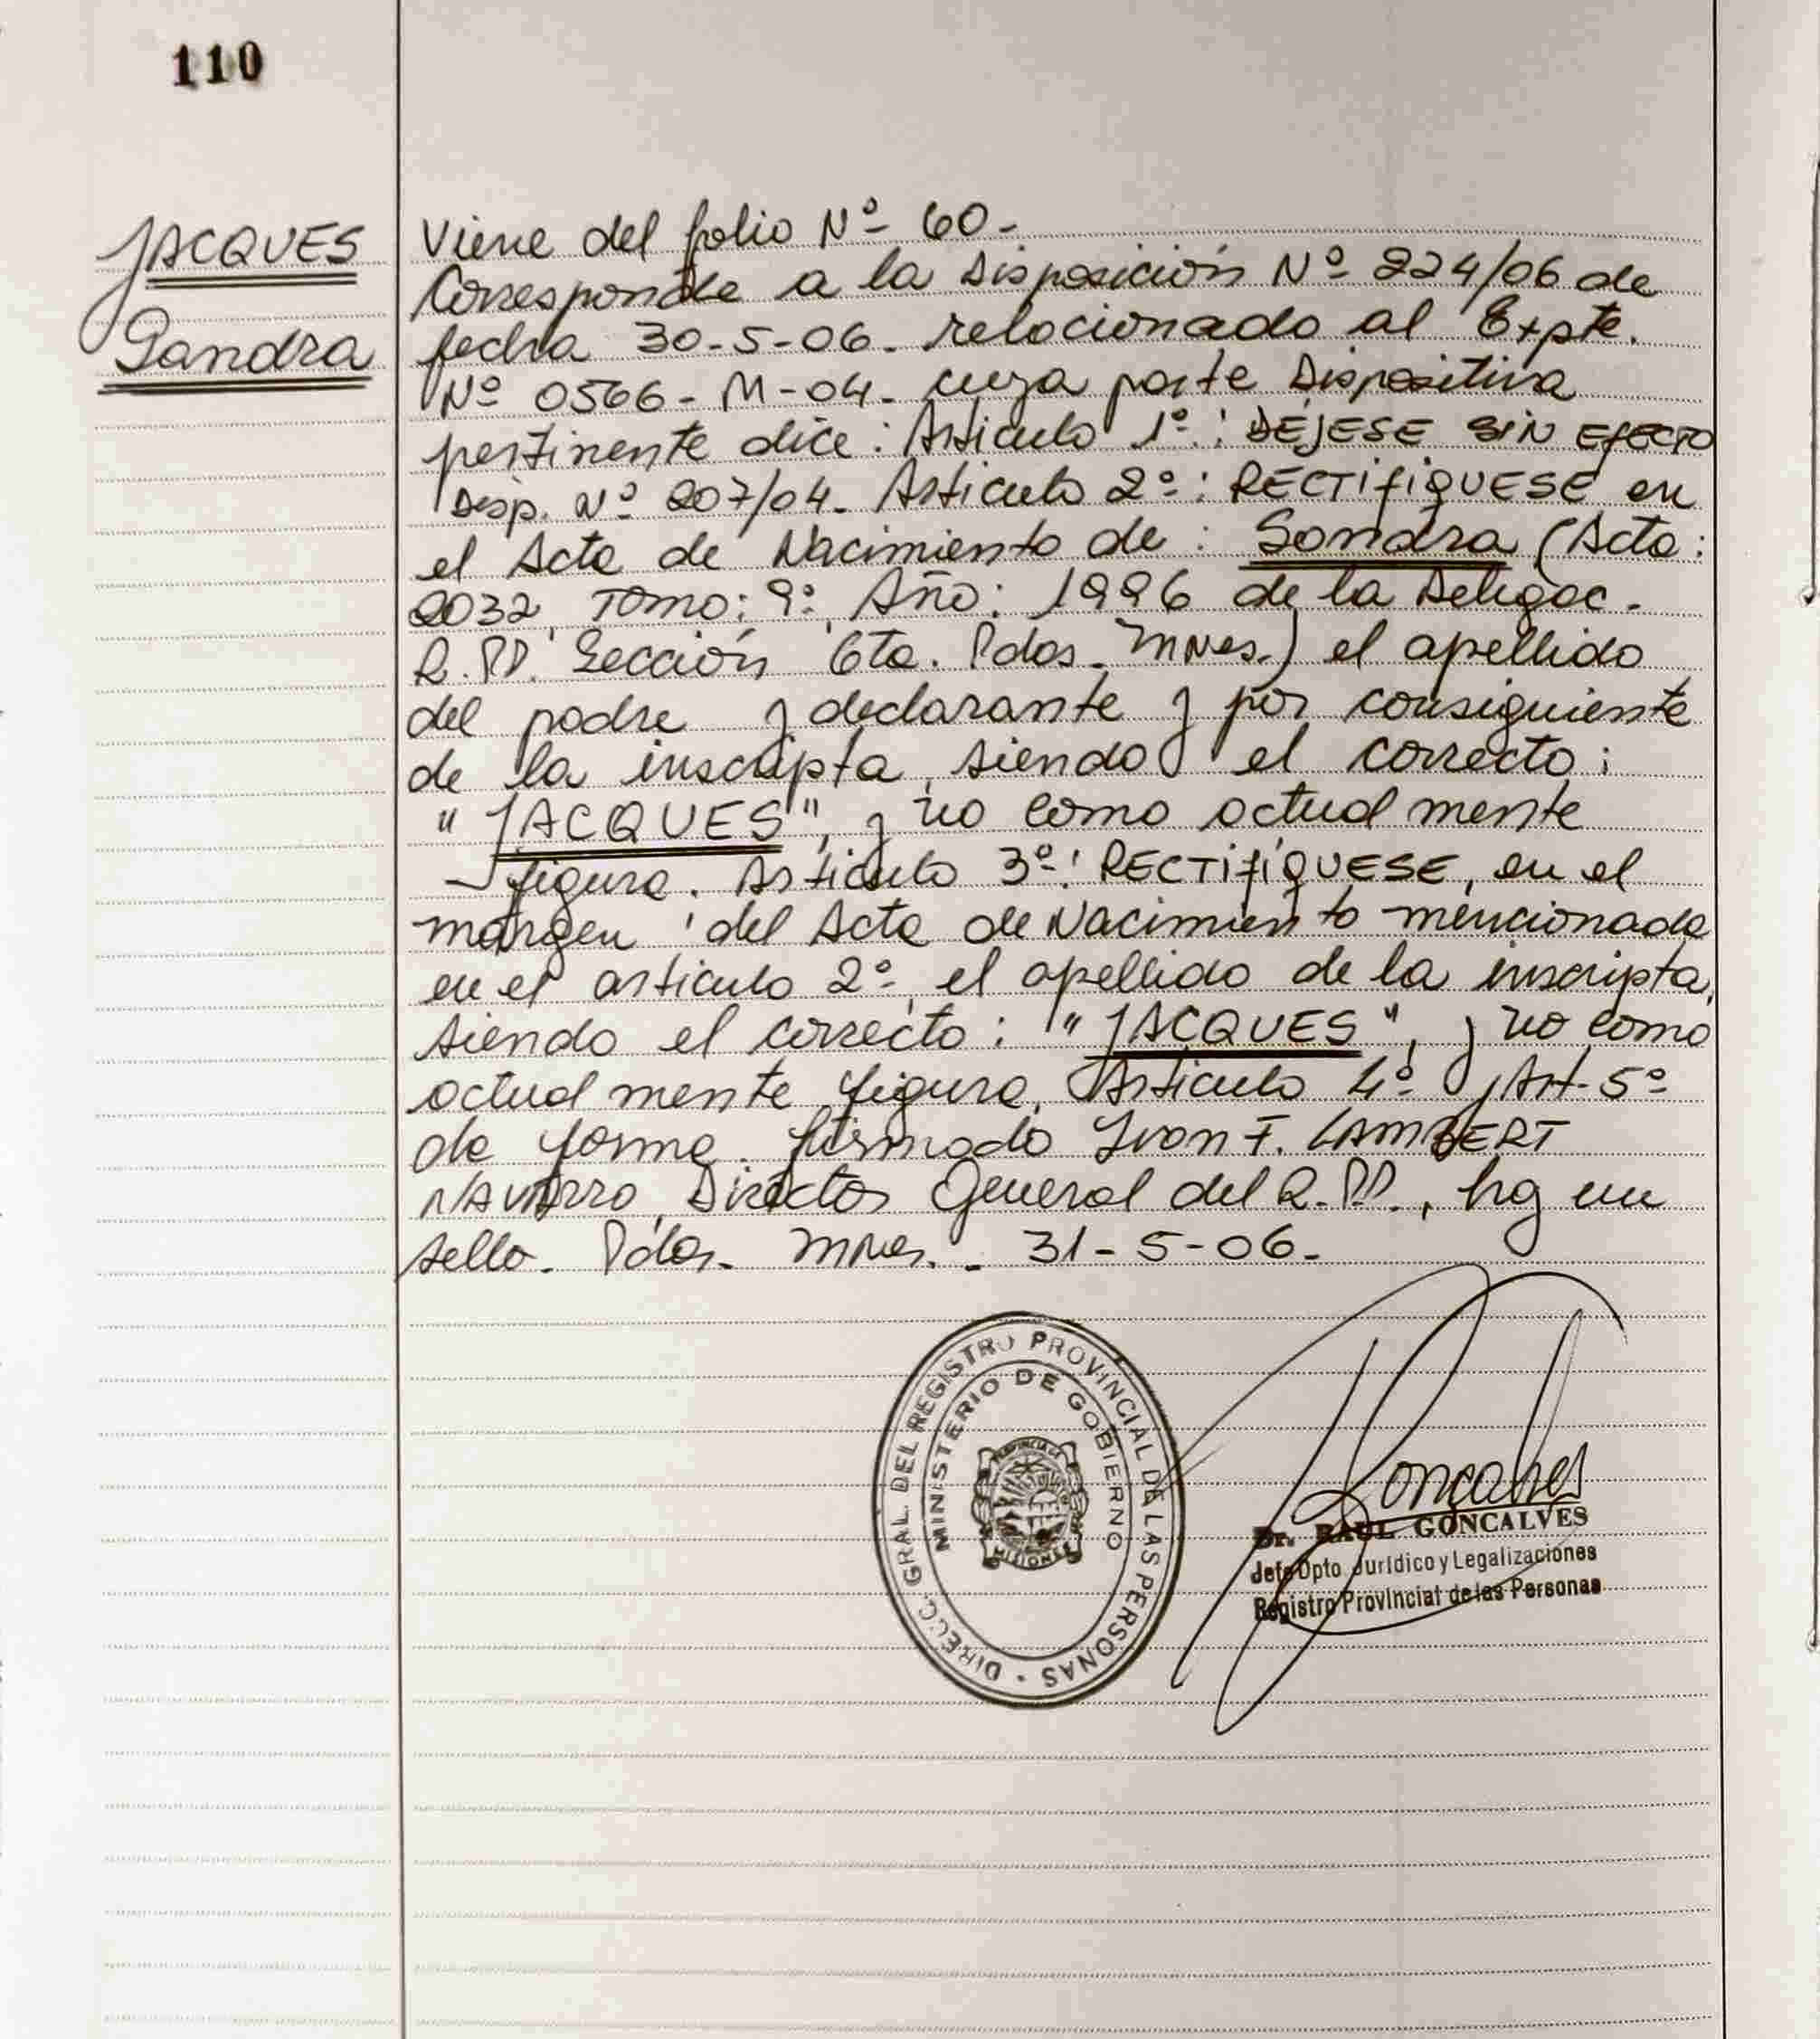 110
JACQUES
Sandra
Viene del folio Nº 60-
Corresponde a la Disposición Nº 224/06 de
fecha 30-5-06. relacionado al Expte.
Nº 0566-M-04. cuya parte Dispositiva
pertinente dice: Articulo 1º: DÉJESE SIN EfECTO
Disp. Nº 207/04. Articulo 2º: RECTIfíQUESE en
el Acta de Nacimiento de: Sandra (Acta:
2032, Tomo: 9º, Año: 1996 de la Delegac.
R.PP. Sección 6ta. Pdas. Mnes.) el apellido
del padre y declarante y por consiguiente
de la inscripta, siendo el correcto:
"JACQUES", y no como actualmente
figura. Articulo 3º: RECTIfíQUESE, en el
margen del Acta de Nacimiento mencionada
en el articulo 2º, el apellido de la inscripta,
siendo el correcto: "JACQUES", y no como
actualmente figura, Articulo 4º y Art. 5º
de forma. firmado Ivan F. LAMBERT
NAVARRO, Director General del R.PP., hay un
sello. Pdas. Mnes. - 31-5-06-
DIRECC. GRAL. DEL REGISTRO PROVINCIAL DE LAS PERSONAS
MINISTERIO DE GOBIERNO
PROVINCIA DE
MISIONES
Goncalves
Dr. RAUL GONCALVES
Jefe Dpto Jurídico y Legalizaciones
Registro Provincial de las Personas